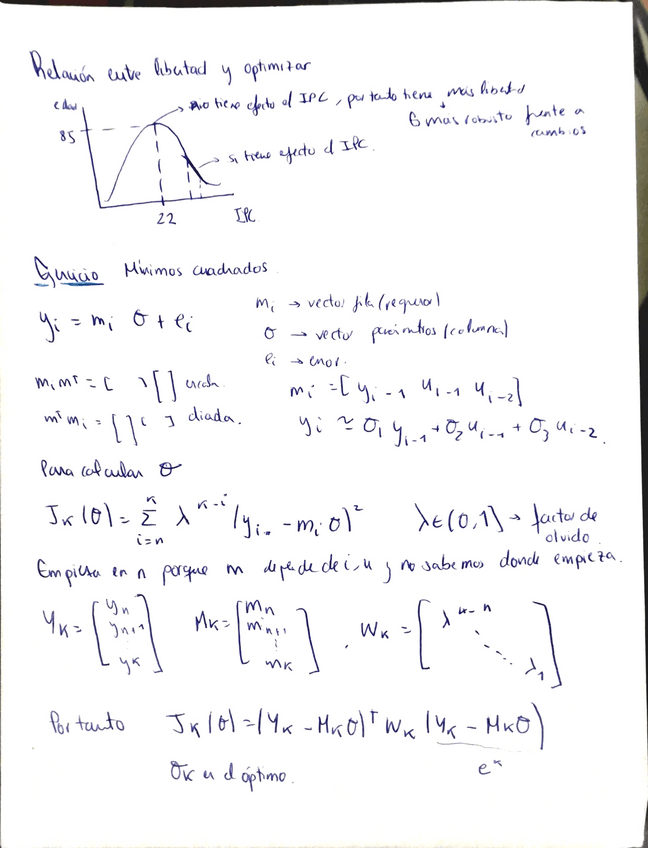 Relación entre libertad y optimizar
no tiene efecto el IPC, por tanto tiene más libertad
6 mas robusto frente a
cambios
85
si tiene efecto el IPC.
22 IPC
Mínimos cuadrados.
yi = mi θ + ei
mi → vector fila (regresor)
θ → vector parámetros (columna)
ei → error.
mi mᵀ = [ ] [ ]
mᵀ mi = [ ] [ ] diada.
mi = [yi-1 ui-1 ui-2]
yi ≃ θ1 yi-1 + θ2 ui-1 + θ3 ui-2.
Para calcular θ
JK(θ) = Σ_{i=n}^{K} λ^{K-i} (yi - mi θ)² λ∈(0,1] → factor de
olvido.
Empieza en n porque m depende de i, u y no sabemos donde empieza.
YK = [yn yn+1 ⋮ yK] MK = [mn mn+1 ⋮ mK] . WK = [λ^{K-n} ⋱ λ1]
Por tanto JK(θ) = (YK - MKθ)ᵀ WK (YK - MKθ)
θK es el óptimo.